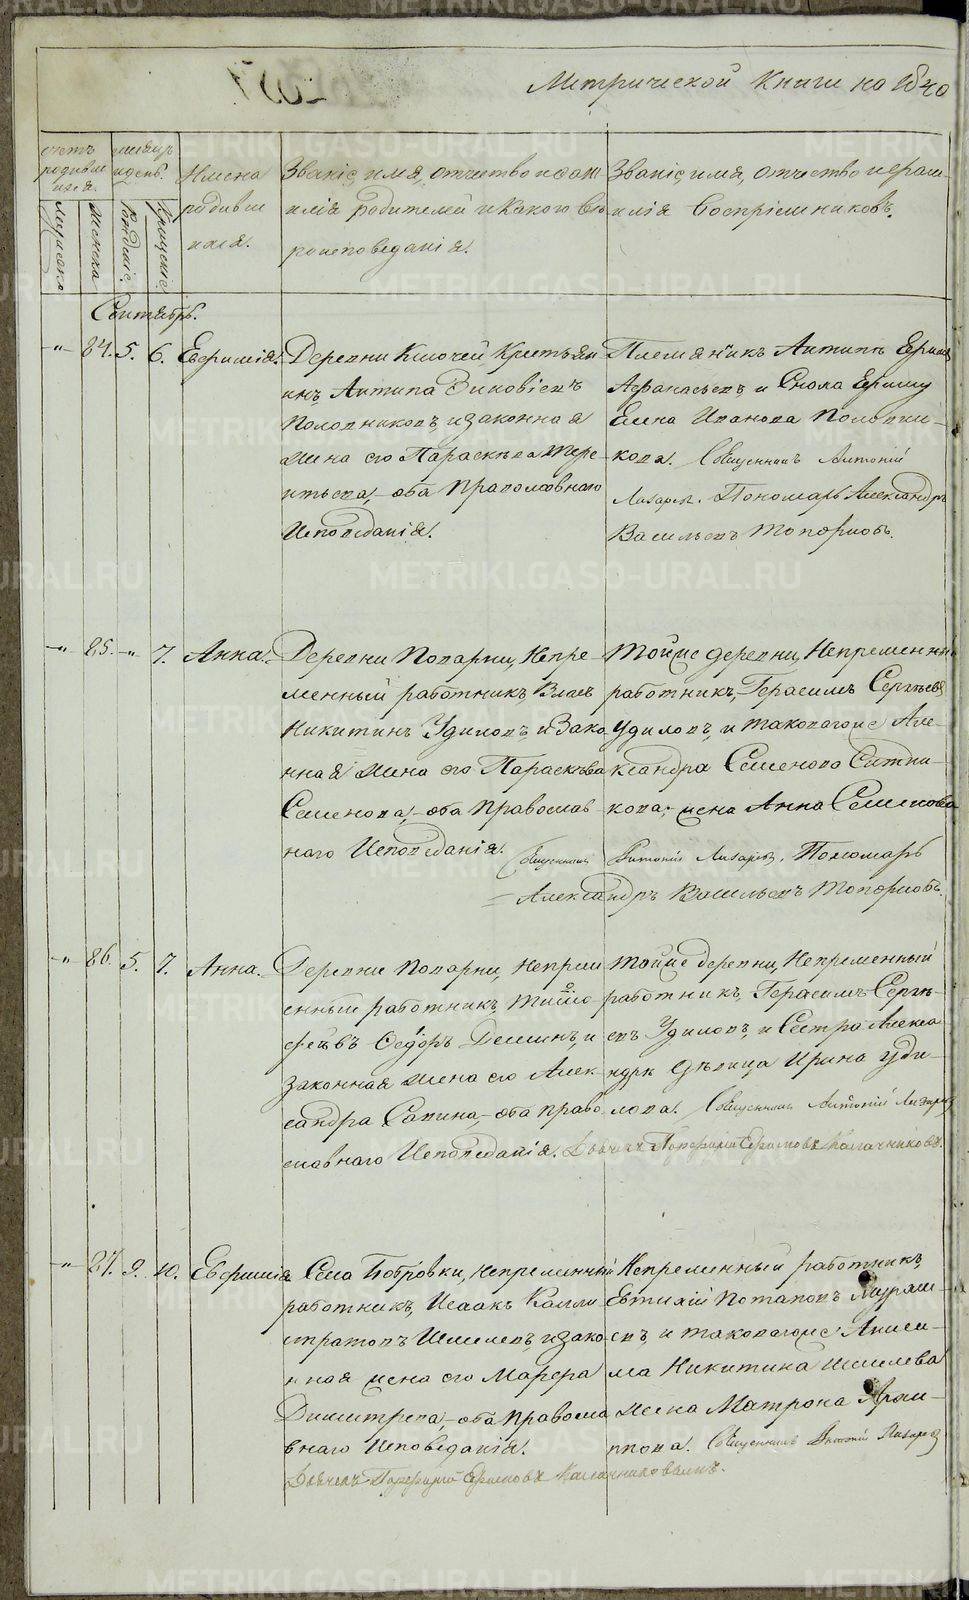 Метрической Книги на 1840
счетъ родившихся.
мѣсяцъ и день.
Мужеска
Женска
Рожденіе.
Крещеніе.
Имена
родивши
хся.
Званіе, имя, отчество и фам
илія родителей и какого вѣ
роисповеданія.
Званіе, имя, отчество и фам
илія воспріемниковъ.
Сентябрь.
-"- 84. 5. 6. Евфимія.
Деревни Ключей, Крестьян
инъ, Антипа Зиновіевъ
Половниковъ, и законная
жена его Параскева Тере
нтьева, оба Православнаго
Исповеданія.
Племянникъ Антипъ
Афанасьевъ, и Сноха
Елена Иванова Половни-
кова. Священникъ Антоній
Лазаревъ. Пономарь Александръ
Васильевъ Топорковъ.
-"- 85. -"- 7. Анна.
Деревни Поварни, Непре-
менный работникъ, Власъ
Никитинъ Удиловъ, и Зако
нная жена его Параскева
Семенова, оба Православ-
наго Исповеданія.
Тойже деревни, Непременный
работникъ, Герасимъ Сергѣевъ
Удиловъ, и таковагоже Але-
ксандра Семенова Ситни-
кова, жена Анна Семенова
Священникъ Антоній Лазаревъ. Пономарь
Александръ Васильевъ Топорковъ.
-"- 86. 5. 7. Анна.
Деревни Поварни, Неприм
енный работникъ, Тимо-
феевъ Федоръ Деминъ, и
законная жена его Алек-
сандра Савина, оба право
славнаго Исповеданія.
Тойже деревни, Непременный
работникъ, Герасимъ Сергѣ-
евъ Удиловъ, и Сестра Алекса
ндры дѣвица Ирина Уди-
лова. Священникъ Антоній Лазаревъ
Дьячекъ Порфирій Ефимовъ Калачниковъ.
-"- 87. 9. 10. Евфимія
Села Бобровки, Непременный
работникъ, Исаакъ Калли
стратовъ Шмелевъ, и зако-
нная жена его Марфа
Димитрева, оба Правосла
внаго Исповеданія.
Непременный работникъ,
Евтихій Потаповъ Мураш-
евъ и таковагоже Аниси-
ма Никитина Шмелева
жена Матрона Архи-
ппова. Священникъ Антоній Лазаревъ
Дьячекъ Порфирій Ефимовъ Калачниковъ.
METRIKI.GASO-URAL.RU